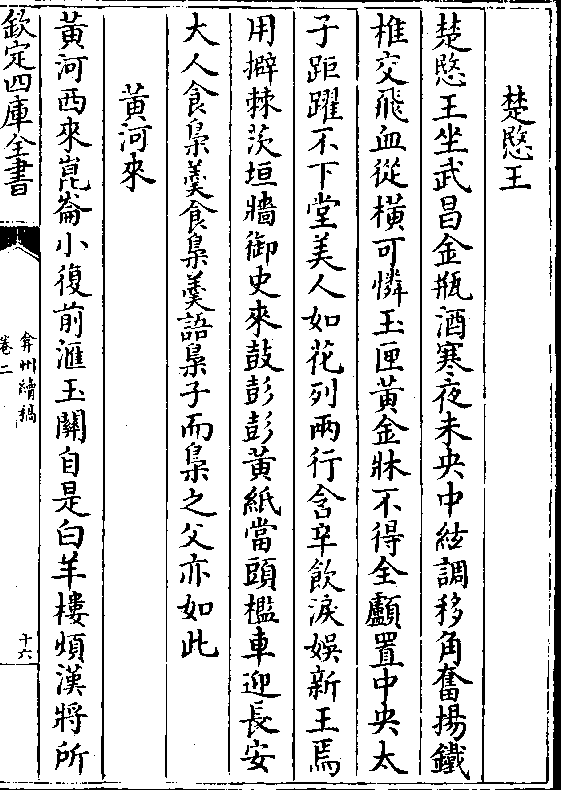 楚愍王
楚愍王坐武昌金瓶酒寒夜未央中絃調移角奮揚鐵
椎交飛血從横可憐玉匣黃金牀不得全顱置中央太
子距躍不下堂美人如花列兩行含辛飲淚娛新王焉
用擗棘茨垣牆御史來鼓彭彭黃紙當頭檻車迎長安
大人食梟羹食梟羹語梟子而梟之父亦如此
黃河來
黃河西來崑崙小復前滙玉關自是白羊樓煩漢將所
欽定四庫全書
弇州續稿
卷二
十六